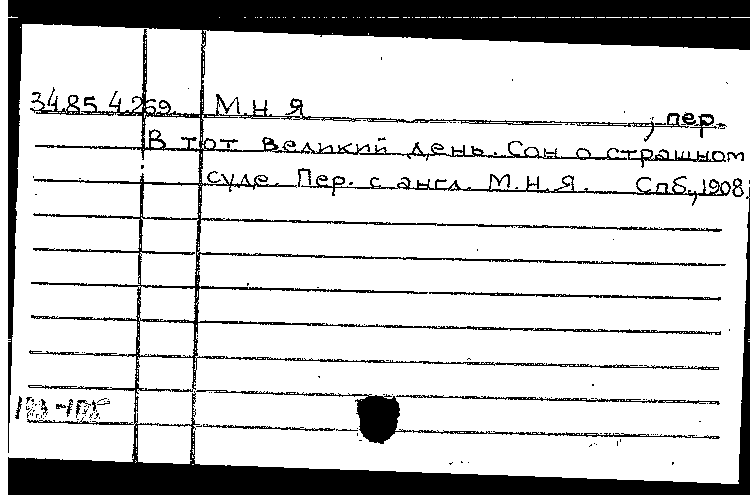 34.85.4.269. М.Н.Я , пер.
В тот великий день. Сон о страшном
суде. Пер. с англ. М.Н.Я. Спб., 1908.